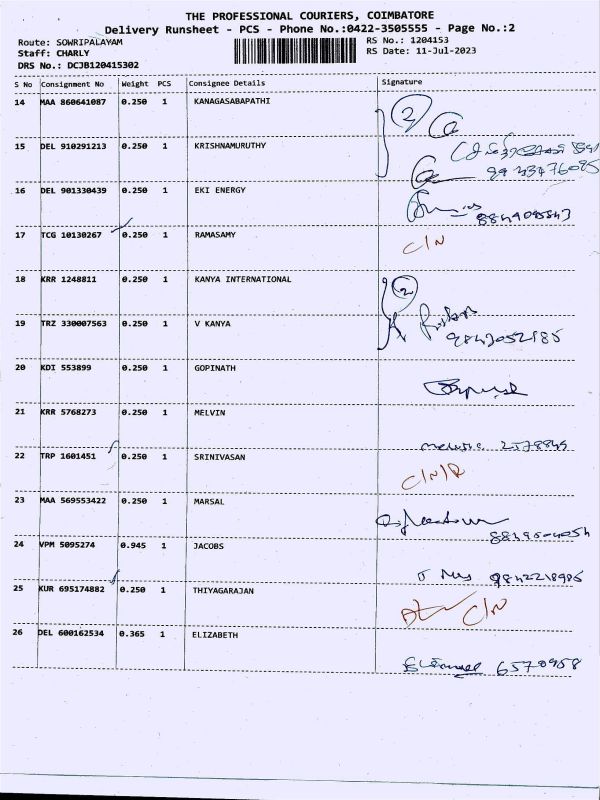 THE PROFESSIONAL COURIERS, COIMBATORE
Delivery Runsheet - PCS - Phone No.:0422-3505555 - Page No.:2
Route: SOWRIPALAYAM RS No.: 1204153
Staff: CHARLY RS Date: 11-Jul-2023
DRS No.: DCJB120415302
S No Consignment No Weight PCS Consignee Details Signature
14 MAA 860641087 0.250 1 KANAGASABAPATHI 2
15 DEL 910291213 0.250 1 KRISHNAMURUTHY
16 DEL 901330439 0.250 1 EKI ENERGY
17 TCG 10130267 0.250 1 RAMASAMY C/N
18 KRR 1248811 0.250 1 KANYA INTERNATIONAL 2
19 TRZ 330007563 0.250 1 V KANYA
20 KDI 553899 0.250 1 GOPINATH
21 KRR 5768273 0.250 1 MELVIN
22 TRP 1601451 0.250 1 SRINIVASAN C/N/R
23 MAA 569553422 0.250 1 MARSAL
24 VPM 5095274 0.945 1 JACOBS
25 KUR 695174882 0.250 1 THIYAGARAJAN C/N
26 DEL 600162534 0.365 1 ELIZABETH 6570958